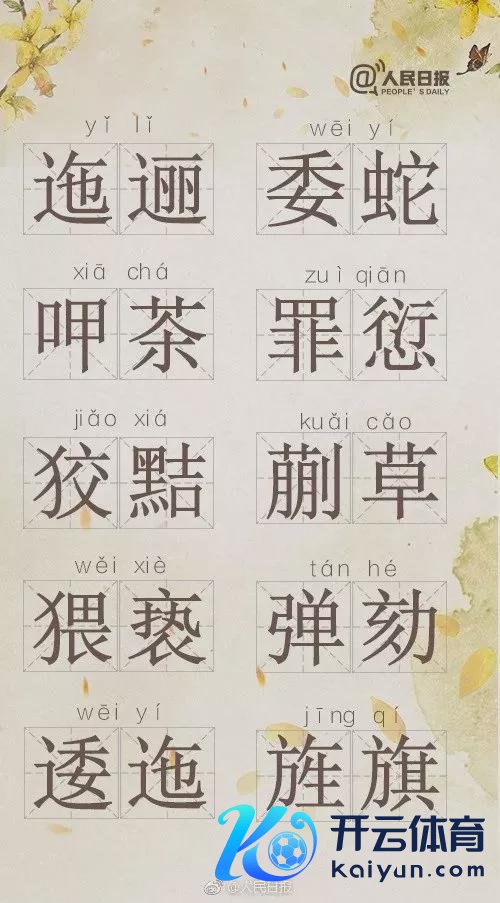 @人民日报
PEOPLE'S DAILY
yǐ lǐ wēi yí
迤逦 委蛇
xiā chá zuì qiān
呷茶 罪愆
jiǎo xiá kuǎi cǎo
狡黠 蒯草
wěi xiè tán hé
猥亵 弹劾
wēi yí jīng qí
逶迤 旌旗
开云体育
kaiyun.com
@人民日报